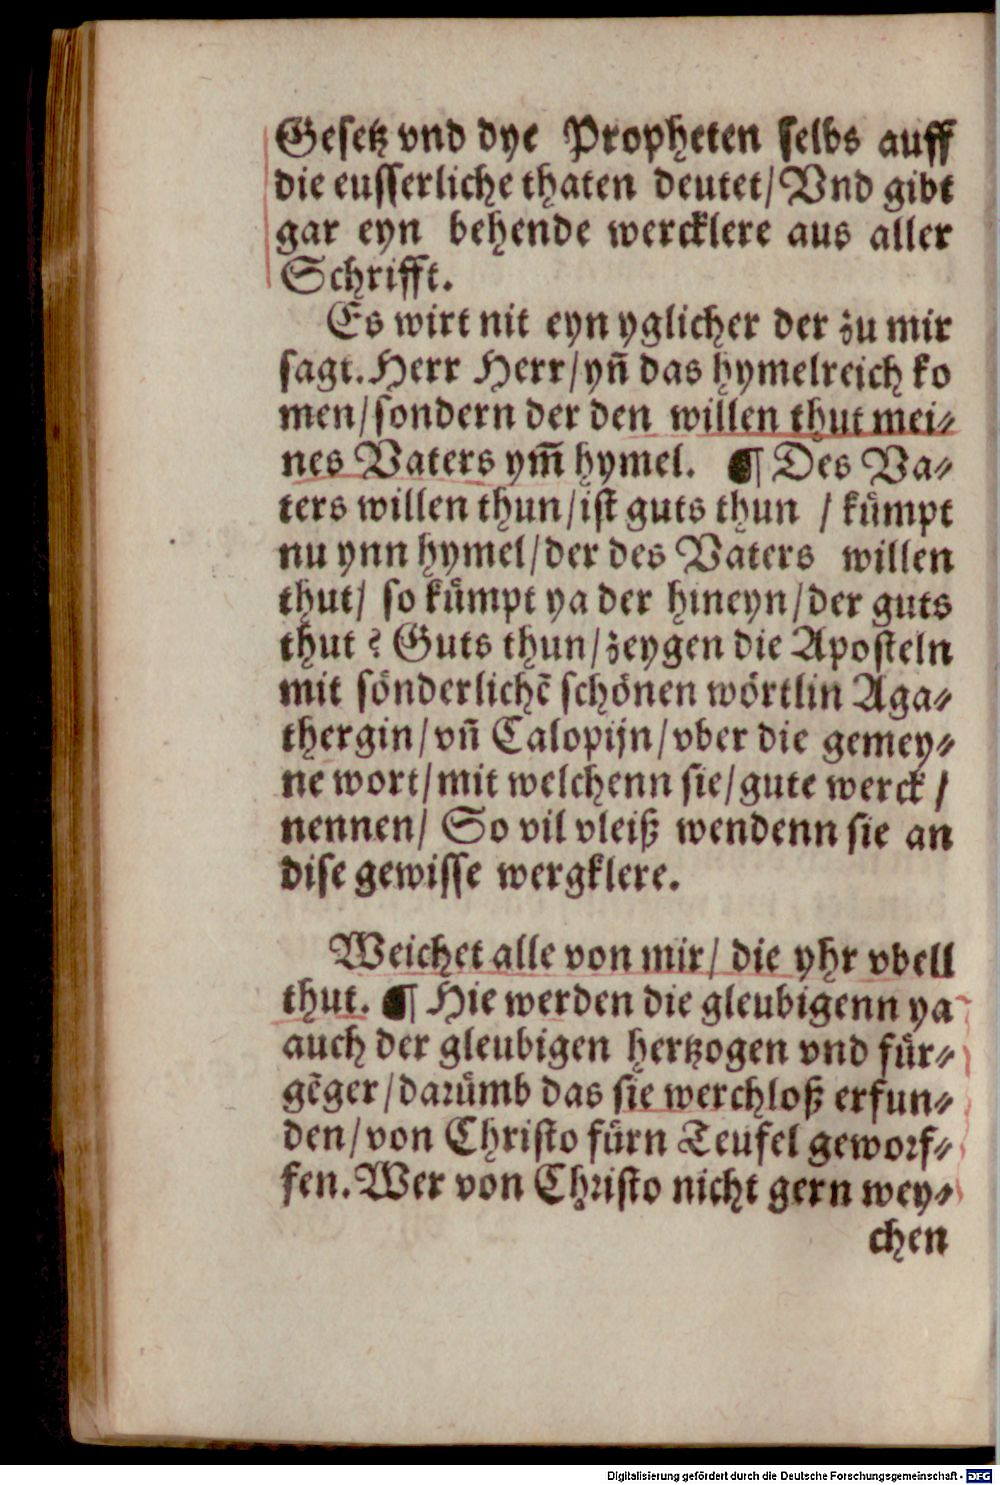 Gesetz vnd dye Propheten selbs auff
die eusserliche thaten deutet/Vnd gibt
gar eyn behende wercklere aus aller
Schrifft.
Es wirt nit eyn yglicher der zu mir
sagt. Herr Herr/yñ das hymelreich ko
men/sondern der den willen thut mei⸗
nes Vaters ym̃ hymel. ¶ Des Va⸗
ters willen thun/ist guts thun / kuͤmpt
nu ynn hymel/der des Vaters willen
thut/ so kuͤmpt ya der hineyn/der guts
thut? Guts thun/zeygen die Aposteln
mit soͤnderlichẽ schoͤnen woͤrtlin Aga⸗
thergin/vñ Calopijn/vber die gemey⸗
ne wort/mit welchenn sie/gute werck /
nennen/ So vil vleiß wendenn sie an
dise gewisse wergklere.
Weichet alle von mir/ die yhr vbell
thut. ¶ Hie werden die gleubigenn ya
auch der gleubigen hertzogen vnd fuͤr⸗
gẽger/daruͤmb das sie werchloß erfun⸗
den/von Christo fuͤrn Teufel geworf⸗
fen. Wer von Christo nicht gern wey⸗
chen
Digitalisierung gefördert durch die Deutsche Forschungsgemeinschaft - DFG